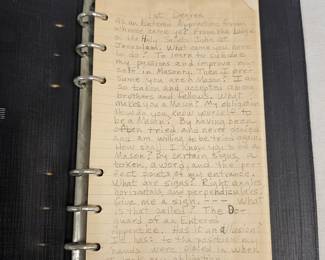 1st Degree
As an Entered Apprentice from
whence came you? From the Lodge
of the Holy Saints John at
Jerusalem. What came you here
to do? To learn to subdue
my passions and improve my
self in Masonry. Then I pre-
sume you are a Mason? I am
so taken and accepted among
brothers and fellows. What
makes you a Mason? My obligation
How do you know yourself to
be a Mason? By having been
often tried and never denied
and am willing to be tried again.
How shall I know you to be a
Mason? By certain signs, a
token, a word, and the per-
fect points of my entrance.
What are signs? Right angles
horizontals and perpendiculars.
Give me a sign. --- What
is that called? The Due
guard of an Entered
Apprentice. Has it an allusion?
It has: to the position my
hands were placed in when